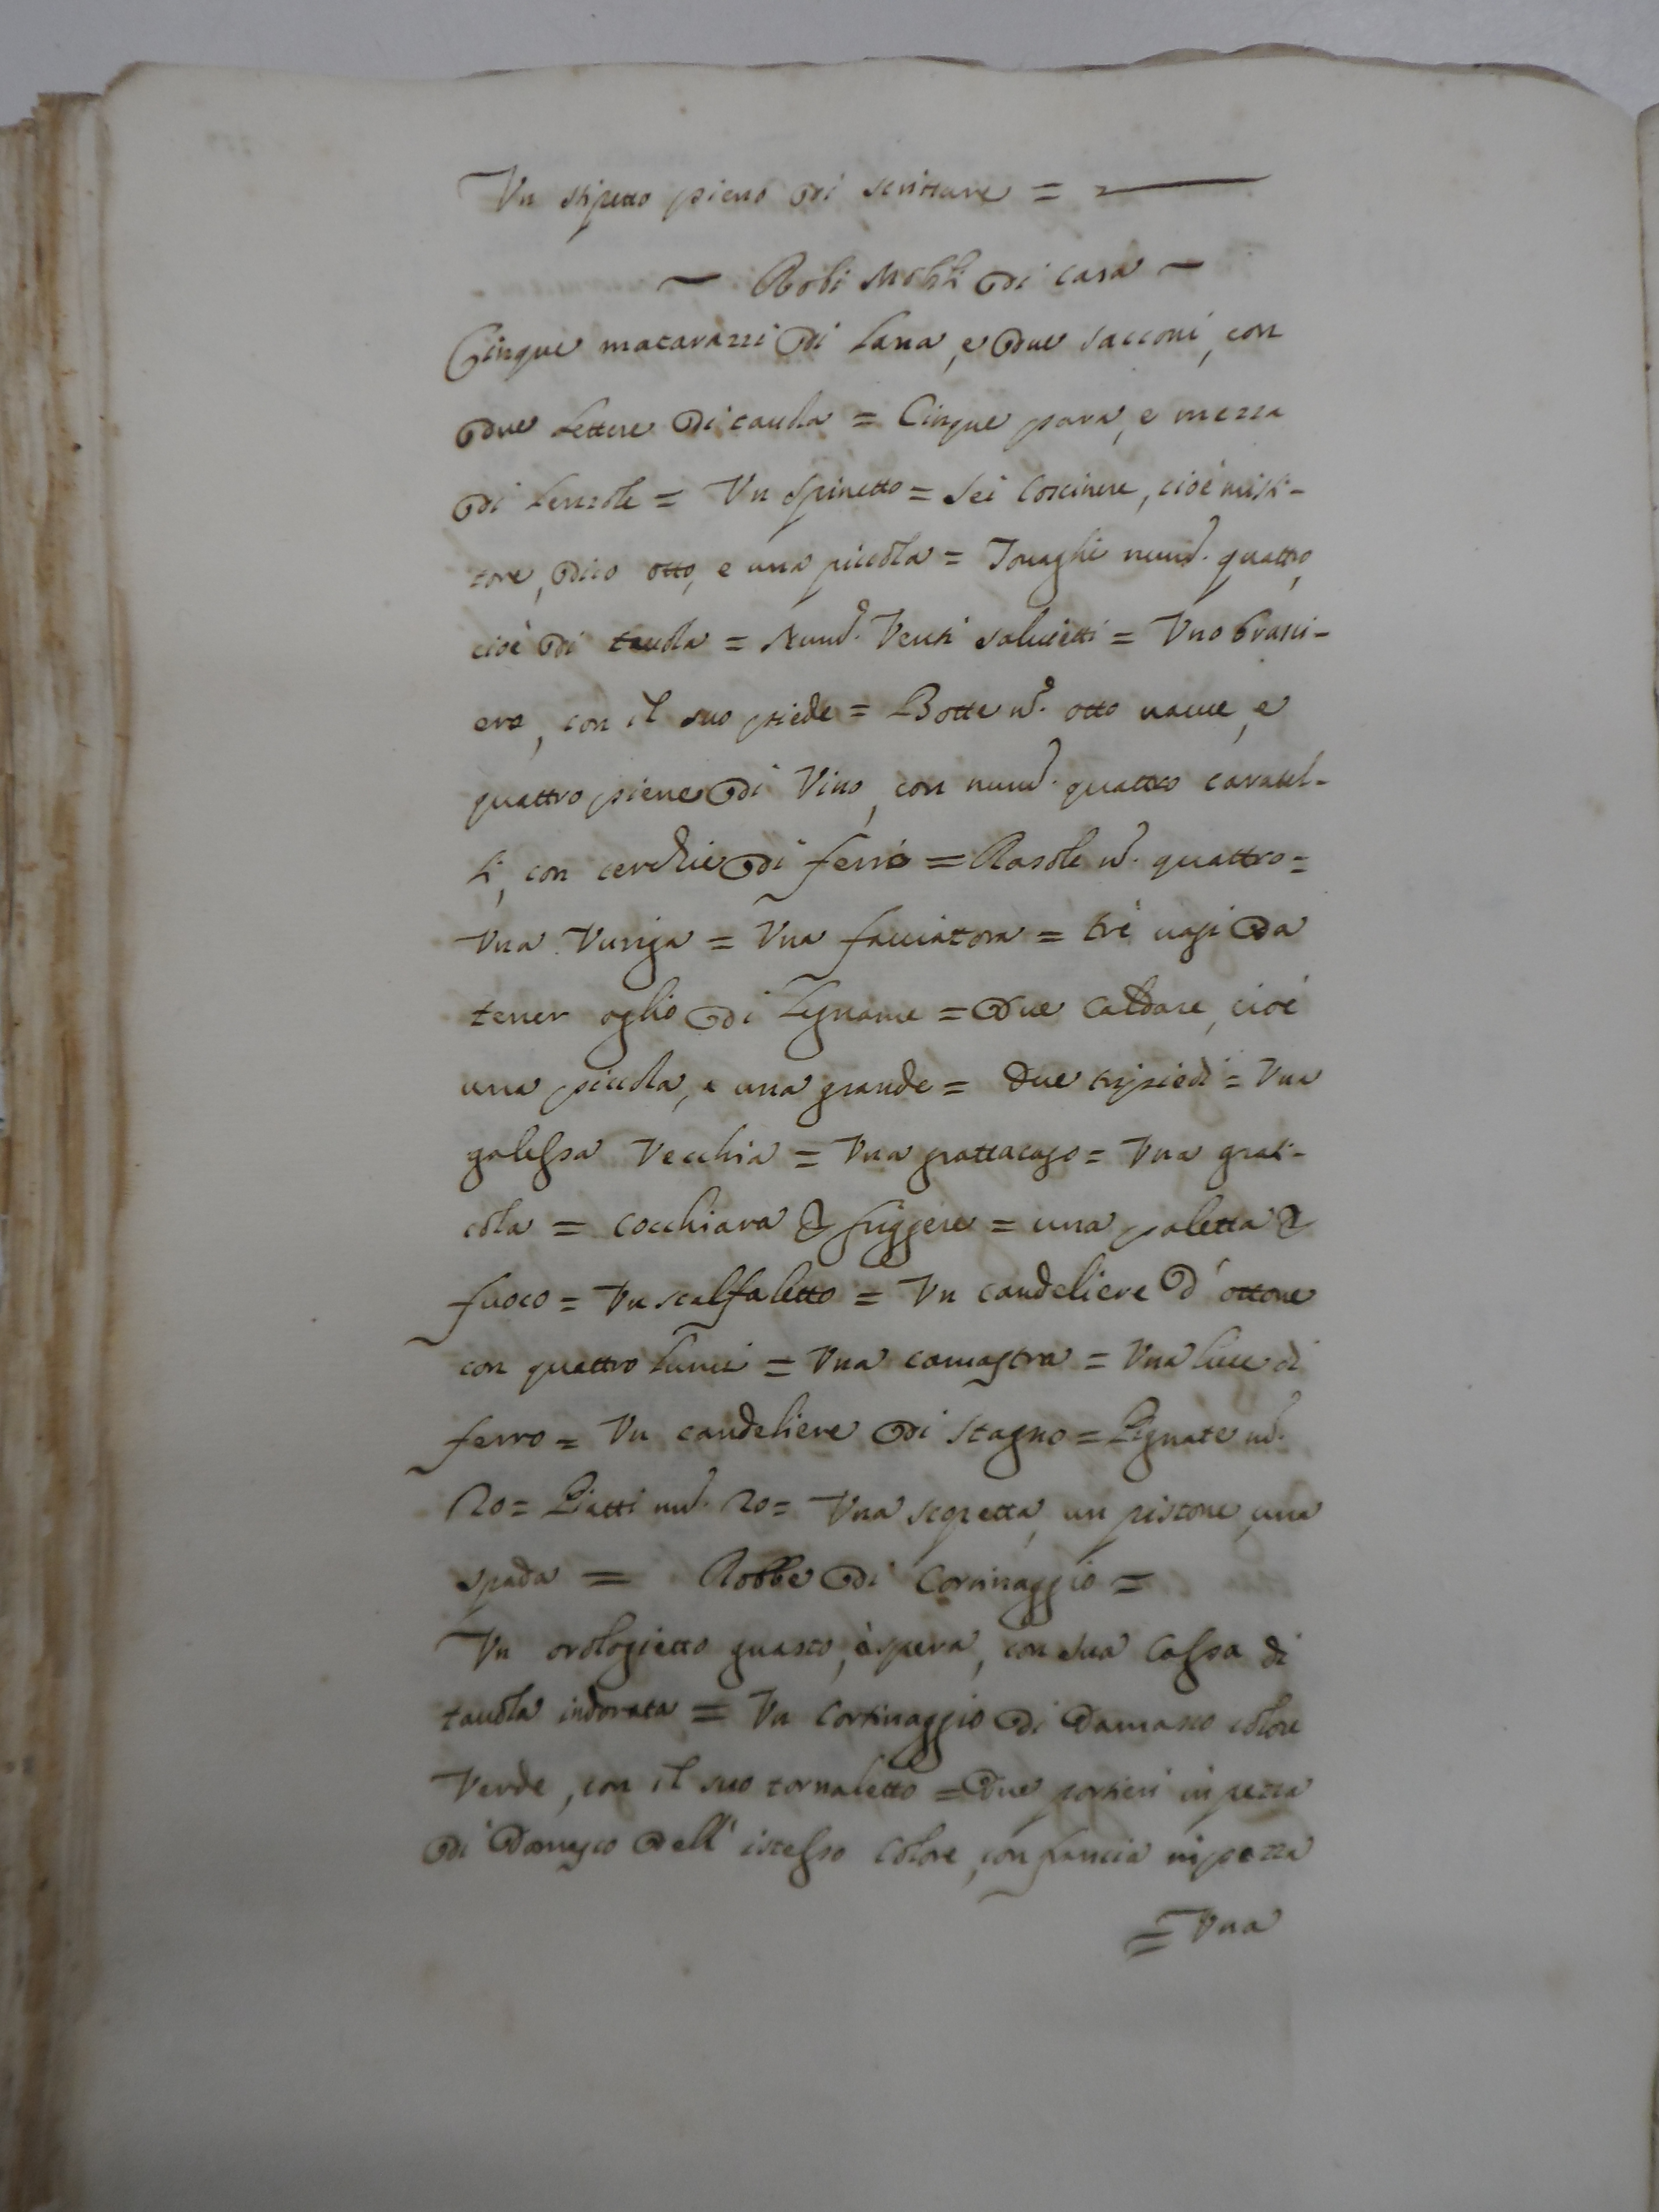 Un stipetto pieno di scritture =
~ Robi Mobili di casa ~
Cinque matarazzi di Lana, e due sacconi, con
due Lettere di tauola = Cinque para, e mezza
di Lenzole = Un Spinetto = Sei Coscinere, cioè misi-
tore, dico otto, e una piccola = Touaghi num.o quattro,
cioè di tauola = Num.o Venti saluietti = Uno brasci-
ere, con il suo piede = Botte n.o otto uacue, e
quattro piene di Vino, con num.o quattro caratel-
li, con cerchie di ferro = Rasole n.o quattro =
Una Vuriga = Una facciatora = trè uasi da
tener oglio di Legname = Due Caldare, cioè
una piccola, e una grande = Due tripiedi = Una
galessa Vecchia = Una grattacaso = Una grati-
cola = Cocchiara & friggere = una paletta &
fuoco = Un scalfaletto = Un candeliere d'ottone
con quattro Lumi = Una camastra = Una Luce di
ferro = Un candeliere di Stagno = Pignate n.o
20 = Piatti nu.o 20 = Una scopetta, un pistone, una
spada = Robbe di Cortinaggio =
Un orologietto guasto, à spera, con sua Cassa di
tauola indorata = Un Cortinaggio di Damasco colore
Verde, con il suo tornaletto = Due portieri in pezza
di Damasco dell' istesso Colore, con francia in pezza
= Una